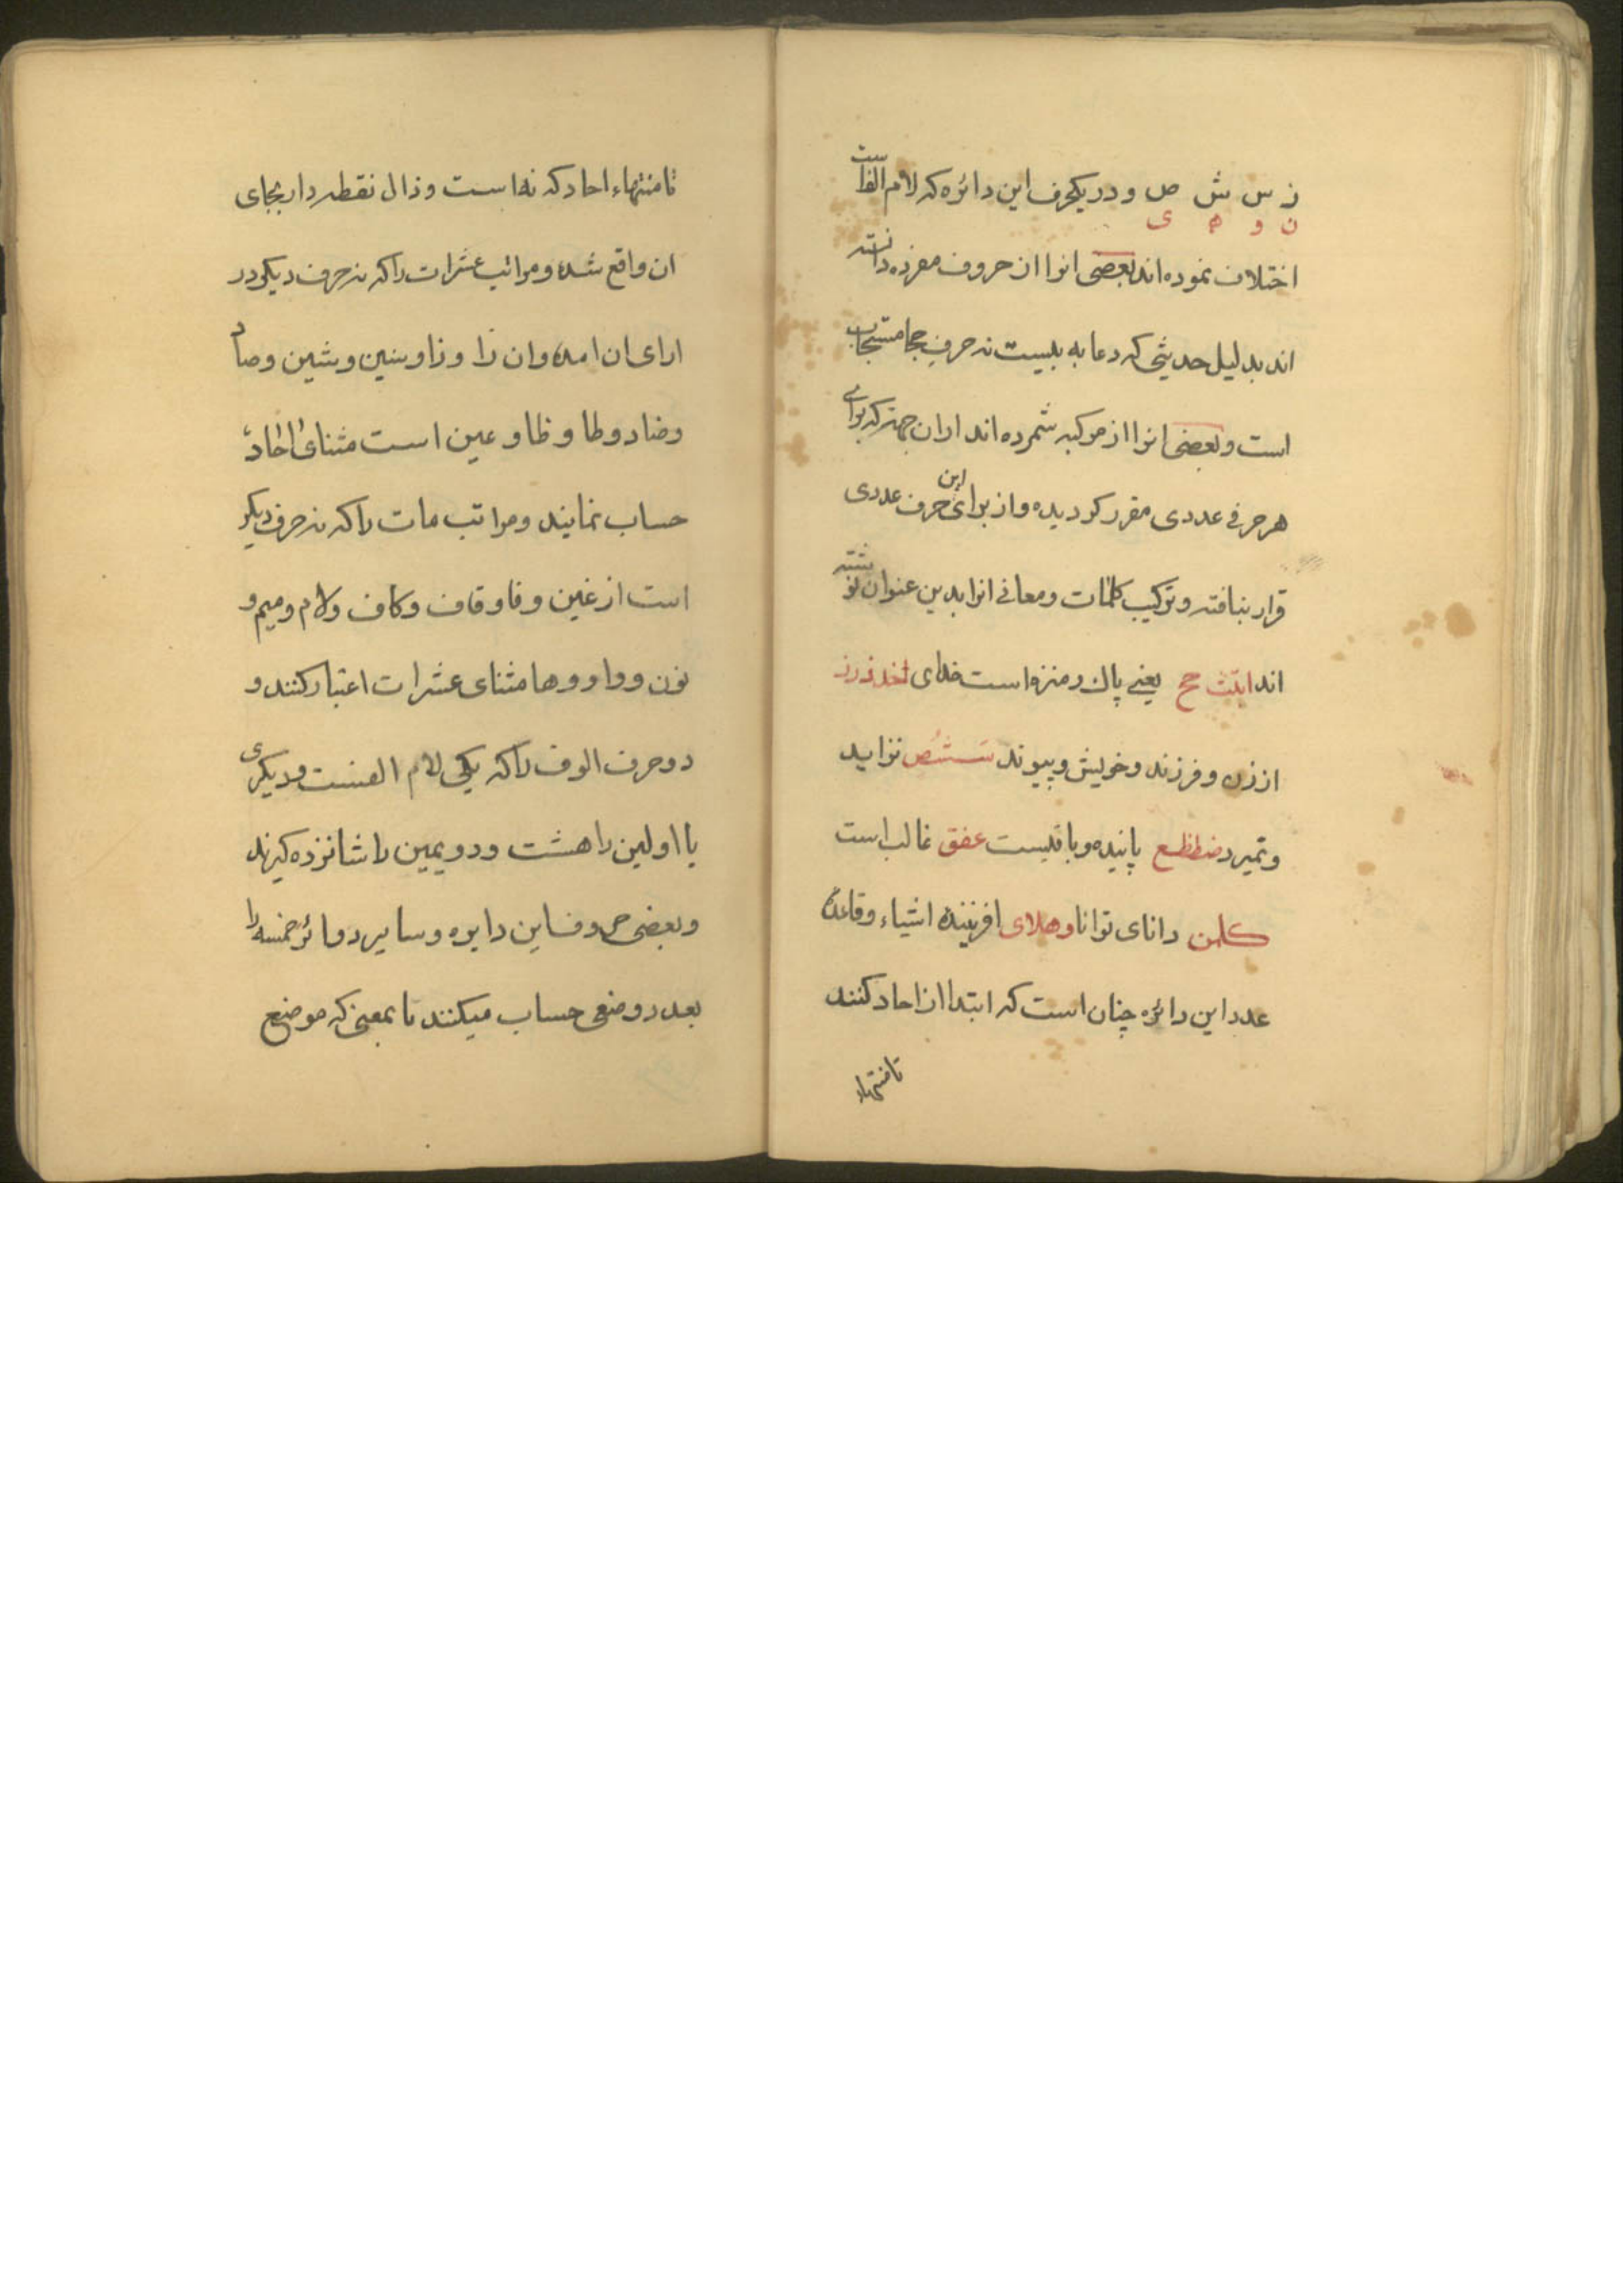 ز س ش ص و در یکحرف این دائره که لام الفاست
ن و ه ی
اختلاف نموده اند بعضی انرا از حروف مفرده دانسته
اند بدلیل حدیثی که دعا به بیست نه حرف هجا مستجاب
است و بعضی انرا از مرکبه شمرده اند از ان جهة که برای
هر حرفی عددی مقرر کردیده و از برای این حرف عددی
قرار نیافته و ترکیب کلمات و معانی انرا بدین عنوان نوشته
اند ابتث جح یعنی پاک و منزه است خدای خدذرز
از زن و فرزند و خویش و پیوند سشص نزاید
و نمیرد ضطظع پاینده و باقیست عفق غالب است
کلمن دانای توانا وهلای افریننده اشیاء و قاعدهٔ
عدد این دائره چنان است که ابتدا از احاد کنند
تا منتهاء
تا منتهاء احاد که نه است و ذال نقطه دار بجای
ان واقع شده و مراتب عشرات را که نه حرف دیکر در
ازای ان امده و ان را و زا و سین و شین و صاد
و ضاد و طا و ظا و عین است مثنای احاد
حساب نمایند و مراتب مات را که نه حرف دیکر
است از غین و فا و قاف و کاف و لام و میم و
نون و واو و ها مثنای عشرات اعتبار کنند و
دو حرف الوف را که یکی لام الفست و دیکری
یا اولین را هشت و دویمین را شانزده کیرند
و بعضی حروف این دایره و سایر دوائر خمسه را
بعدد وضعی حساب میکنند تا بمعنی که موضع